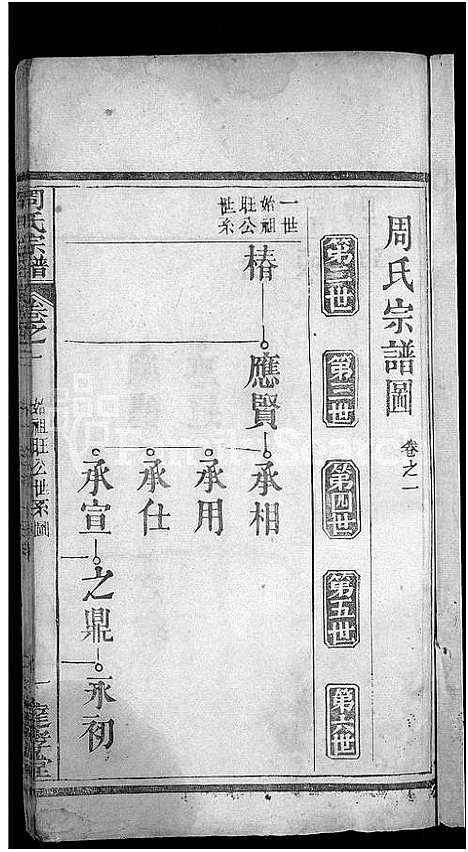 周氏宗譜圖 卷之一
第二世 第三世 第四世 第五世 第六世
一世
始祖
旺公
世系
椿 應賢 承相
承用
承仕
承宣 之鼎 永初
周氏宗譜 卷之一 始祖旺公世系圖 一 孝堂